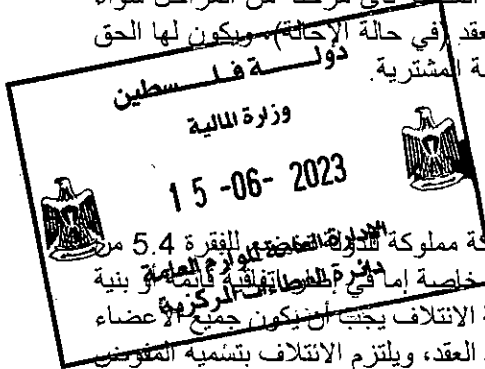 من المراحل سواء
العقد (في حالة الإحالة)، ويكون لها الحق
المشترية.
دولة فلسطين
وزارة المالية
15 -06- 2023
الإدارة العامة للوازم العامة
دائرة العطاءات المركزية
مملوكة للدولة للفقرة 5.4 من
خاصة إما في قائمة أو بنية
الائتلاف يجب أن يكون جميع الأعضاء
العقد، ويلتزم الائتلاف بتسميه المفوض